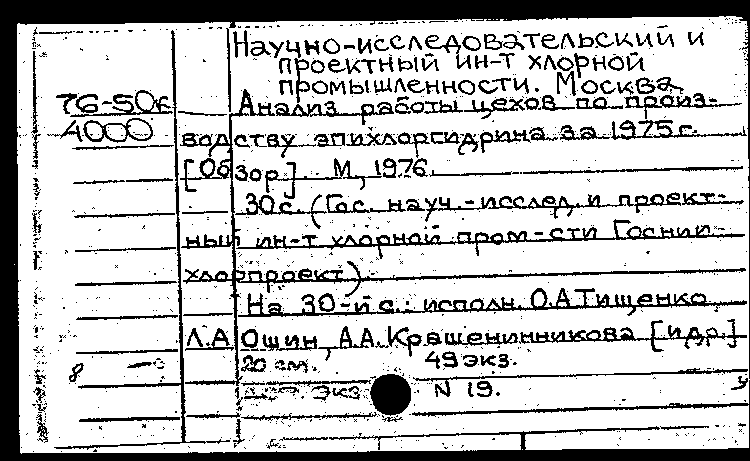 Научно-исследовательский и
проектный ин-т хлорной
промышленности. Москва.
76-50к Анализ работы цехов по произ-
4000
водству эпихлоргидрина за 1975 г.
[Обзор]. М., 1976.
30с. (Гос. науч.-исслед. и проект-
ный ин-т хлорной пром-сти Госнии-
хлорпроект)
На 30-й с.: исполн. О.А Тищенко,
Л.А Ошин, А.А. Крашенинникова [и др.]
20 см. 49 экз.
8
экз N 19.